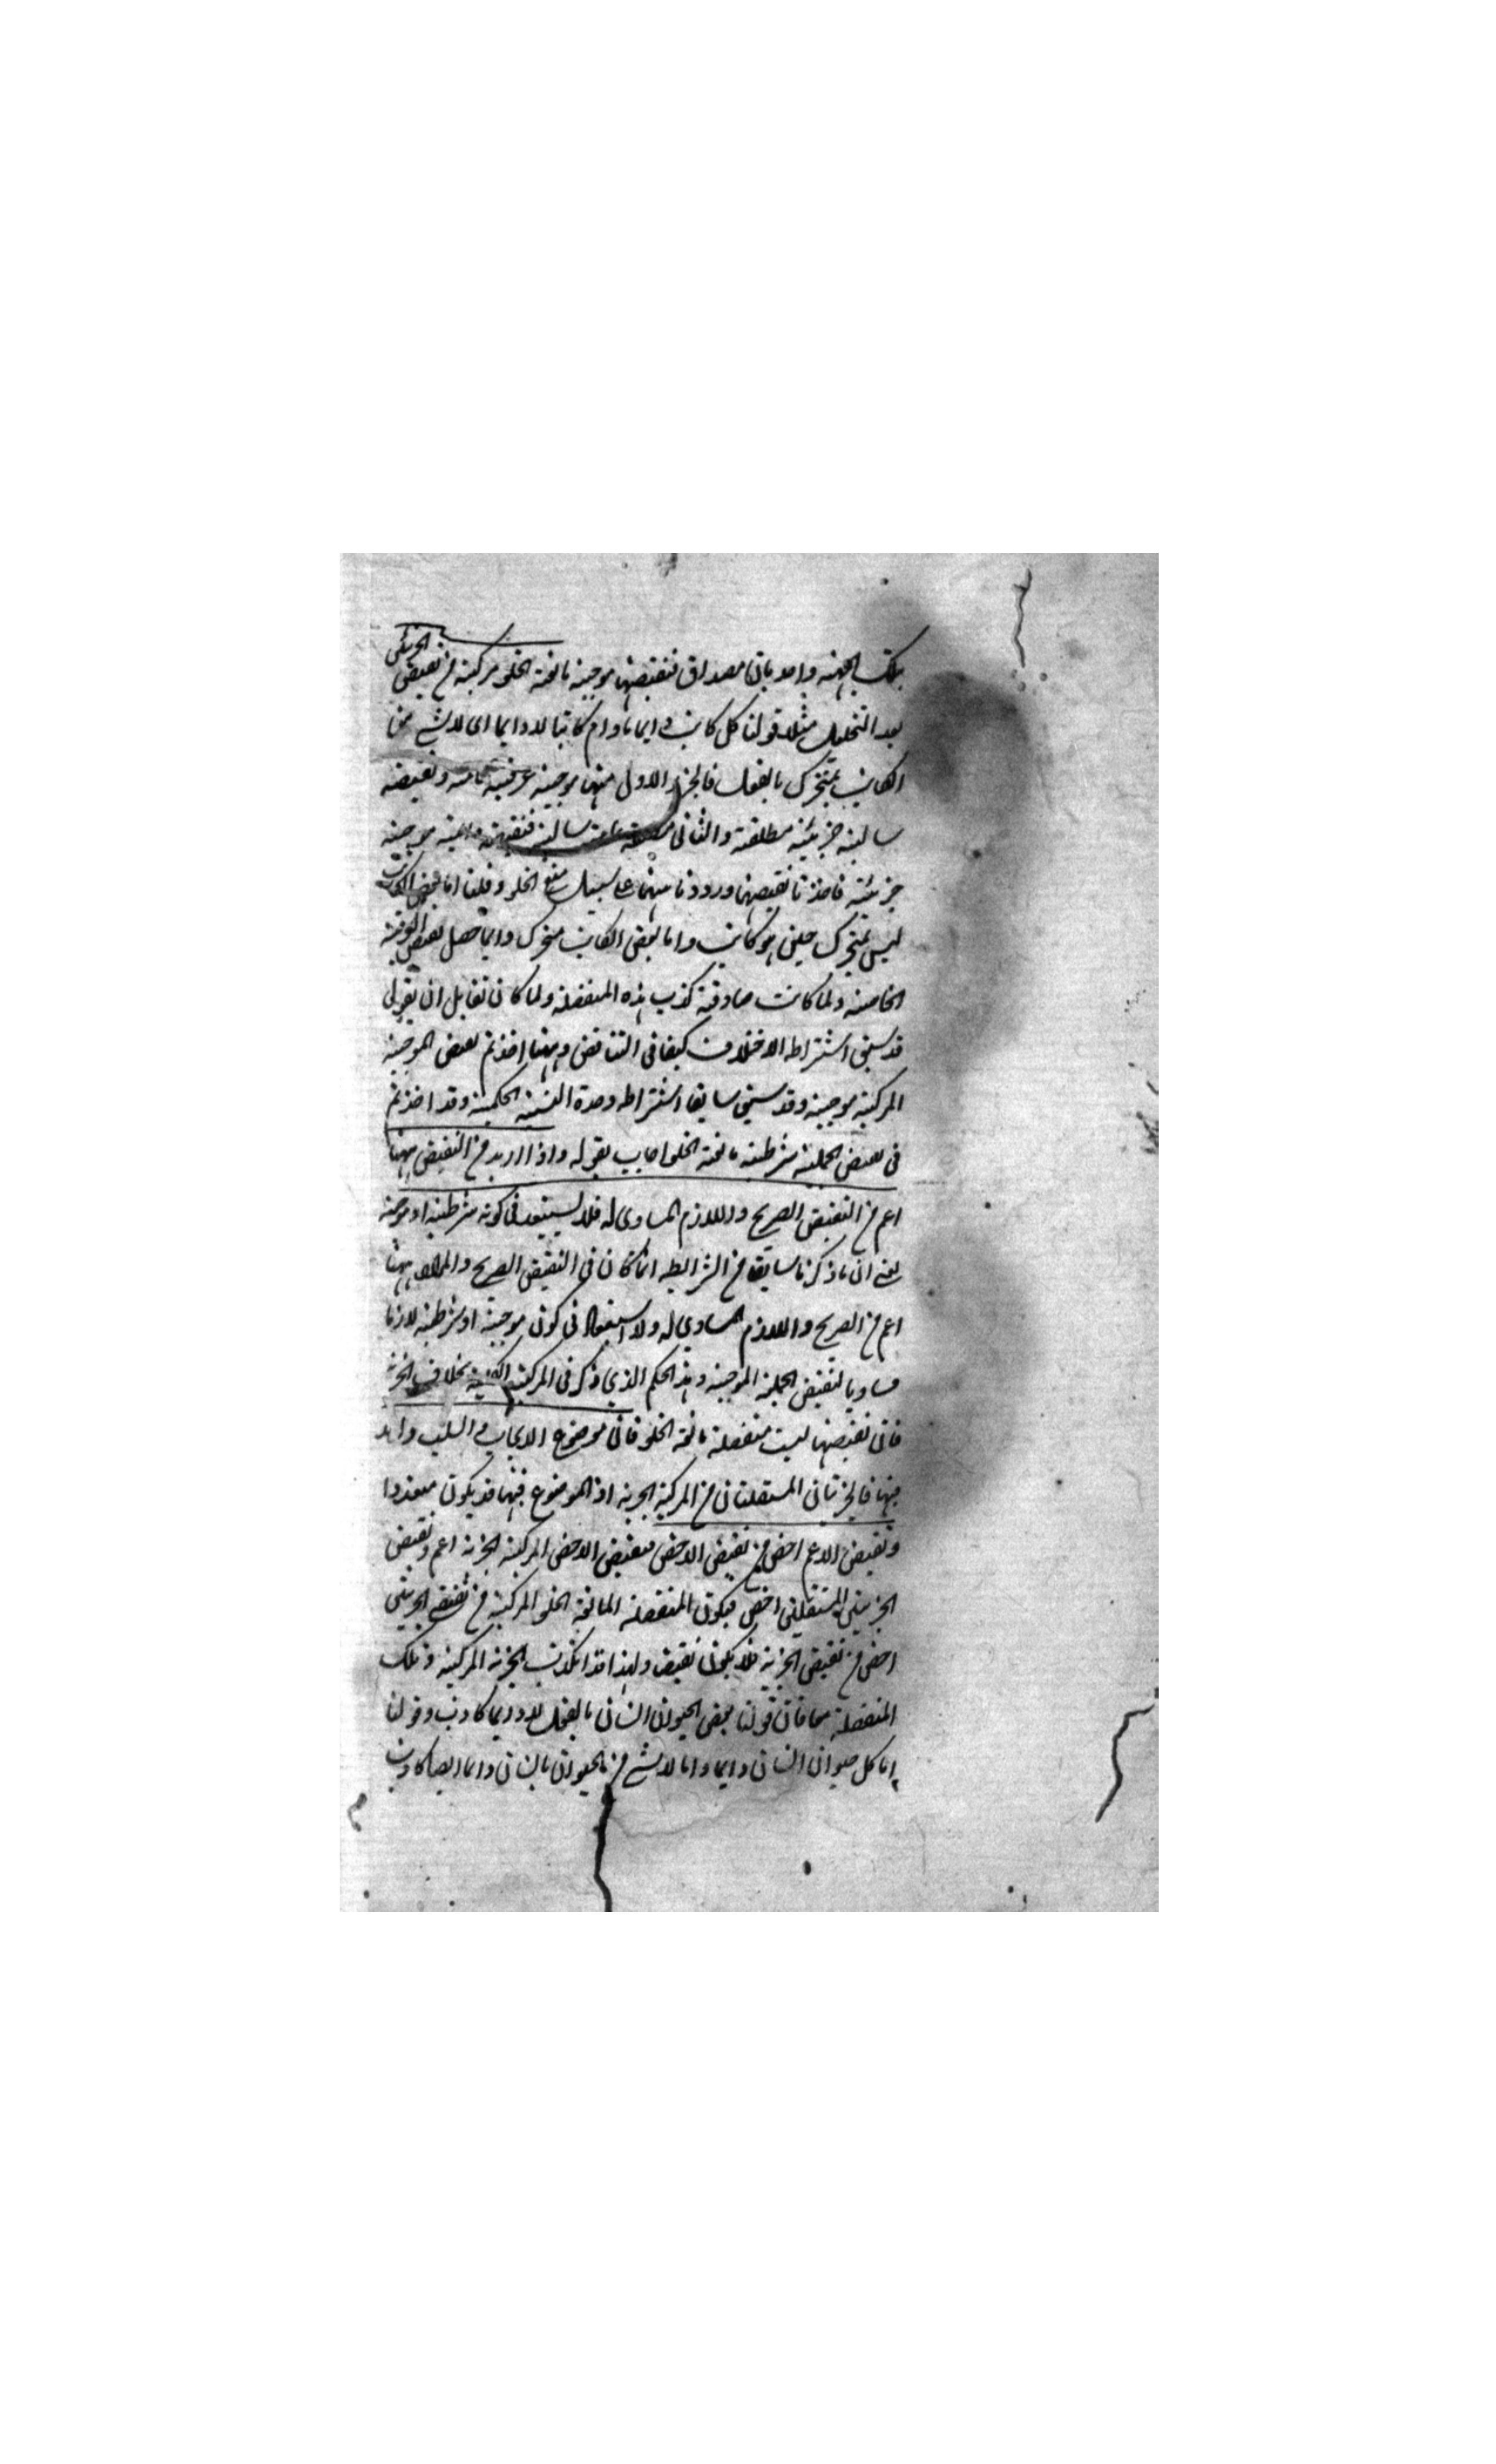 بتلك الجهة واحد بان مصداق فنقيضها موجبة مانعة الخلو مركبة من نقيضي الجزئين
بعد التحليل مثلا قولنا كل كاتب دايما مادام كاتبا لا دايما اى لا شئ من
الكاتب بمتحرك بالفعل فالجزء الاول منها موجبة عرفية عامة ونقيضه
سالبة جزئية مطلقة والثانى مطلقة عامة سالبة فنقيضه دائمة موجبة
جزئية فاخذنا نقيضها ورددنا بينهما على سبيل منع الخلو وقلنا اما بعض الكاتب
ليس بمتحرك حين هو كاتب واما بعض الكاتب متحرك دايما حصل نقيض العرفية
الخاصة ولما كانت صادقة كذب هذه المنفصلة ولما كان لقايل ان يقول
قد سبق اشتراط الاختلاف كيفا فى التناقض وههنا اخذتم نقيض الموجبة
المركبة موجبة وقد سبق سابقا اشتراط وحدة النسبة الحكمية وقد اخذتم
فى نقيض الحملية شرطية مانعة الخلو اجاب بقوله واذا اريد من النقيض ههنا
اعم من النقيض الصريح واللازم المساوى له فلا يستبعد فى كونه شرطية او موجبة
يعنى ان ما ذكرنا سابقا من الشرايط انما كان فى النقيض الصريح والمراد ههنا
اعم من الصريح واللازم المساوى له ولا استبعاد فى كون موجبة او شرطية لازما
مساويا لنقيض الحملية الموجبة وهذا الحكم الذي ذكر فى المركبة الكلية بخلاف الجزئية
فان نقيضها ليست منفصلة مانعة الخلو فان موضوع الايجاب والسلب واحد
فيها فالجزئتان المستقلتان من المركبة الجزية اذ الموضوع فيها قد يكون متعددا
ونقيض الاعم اخص من نقيض الاخص فنقيض الاخص المركبة الجزية اعم ونقيض
الجزيتين المستقلتين اخص فيكون المنفصلة المانعة الخلو المركبة من نقيضى الجزيتين
اخص من نقيض الجزية فلا يكون نقيضا ولهذا قد تكذب الجزية المركبة وتلك
المنفصلة معا فان قولنا بعض الحيوان انسان بالفعل لا دايما كاذب وقولنا
اما كل حيوان انسان دايما واما لا شئ من الحيوان بانسان دايما ايضا كاذب